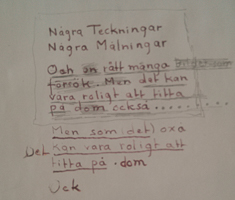 Några Teckningar
Några Målningar
Och en rätt många
försök. Men det kan
vara roligt att titta
på dom också.........
Men som (det) oxa
Det kan vara roligt att
titta på .dom
Ock